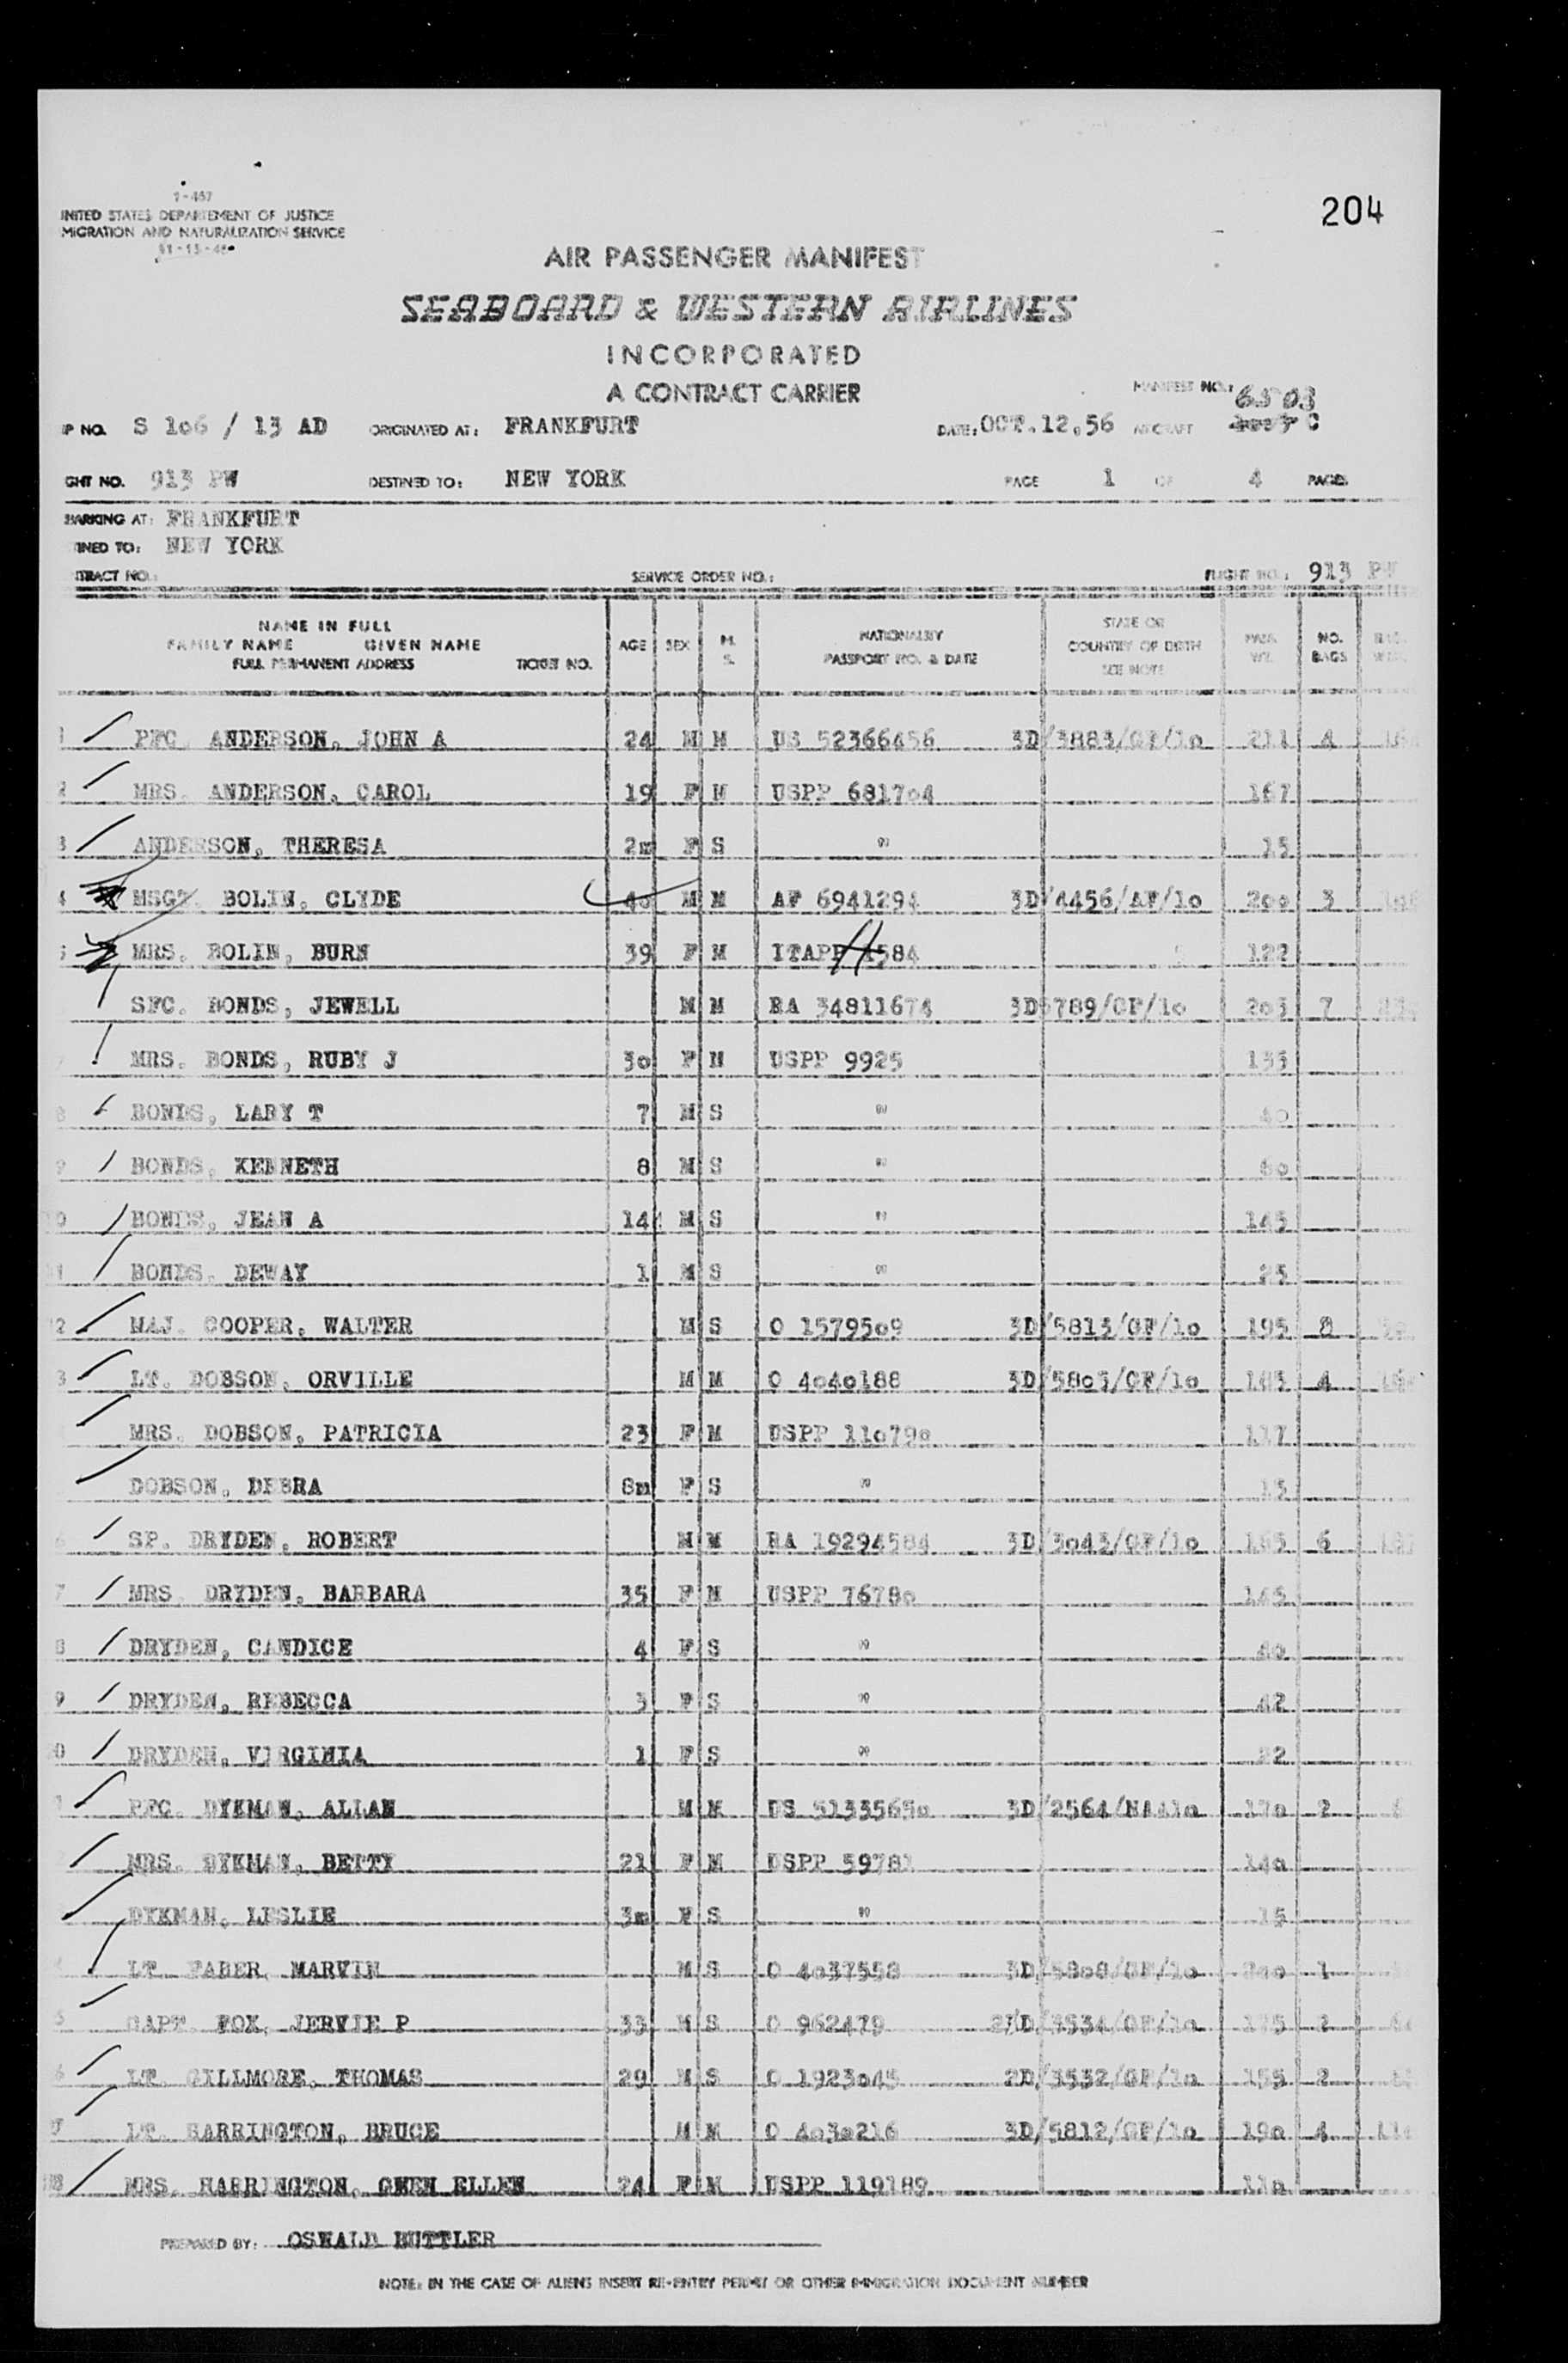 1-467
UNITED STATES DEPARTEMENT OF JUSTICE
MIGRATION AND NATURALIZATION SERVICE
204
AIR PASSENGER MANIFEST
SEABOARD & WESTERN AIRLINES
INCORPORATED
A CONTRACT CARRIER
MANIFEST NO.: 6503
IP NO. S 106 / 13 AD ORIGINATED AT: FRANKFURT DATE: OCT.12.56 AIRCRAFT C
GHT NO. 913 PW DESTINED TO: NEW YORK PAGE 1 OF 4 PAGES
BARKING AT: FRANKFURT
TINED TO: NEW YORK
TRACT NO.: SERVICE ORDER NO.: FLIGHT NO.: 913 PW
NAME IN FULL
FAMILY NAME GIVEN NAME
FULL PERMANENT ADDRESS TICKET NO. AGE SEX M. S. NATIONALITY PASSPORT NO. & DATE STATE OR COUNTRY OF BIRTH SEE NOTE PASS. WT. NO. BAGS
1 PFC. ANDERSON, JOHN A 24 M M US 52366456 3D/3883/GF/1o 211 4
2 MRS. ANDERSON, CAROL 19 F M USPP 6817o4 167
3 ANDERSON, THERESA 2m F S " 15
4 MSGT. BOLIN, CLYDE 4o M M AF 6941294 3D/4456/AF/1o 2oo 3
5 MRS. BOLIN, BURN 39 F M ITAPP 1584 122
SFC. BONDS, JEWELL M M RA 34811674 3D5789/GF/1o 2o3 7
7 MRS. BONDS, RUBY J 3o F M USPP 9925 133
8 BONDS, LARY T 7 M S " 4o
9 BONDS, KENNETH 8 M S " 6o
10 BONDS, JEAN A 14 M S " 145
11 BONDS. DEWAY 1 M S " 25
12 MAJ. COOPER, WALTER M S O 15795o9 3D/5813/GF/1o 195 8
3 LT. DOBSON, ORVILLE M M O 4o4o188 3D/58o3/GF/1o 183 4
MRS. DOBSON, PATRICIA 23 F M USPP 11o79o 117
DOBSON, DEBRA 8m F S " 13
6 SP. DRYDEN, ROBERT M M RA 19294584 3D/3o43/GF/1o 165 6
7 MRS. DRYDEN, BARBARA 35 F M USPP 7678o 145
8 DRYDEN, CANDICE 4 F S " 4o
9 DRYDEN, REBECCA 3 F S " 42
0 DRYDEN, VIRGINIA 1 F S " 22
1 PFC. DYKMAN, ALLAN M M US 5133565o 3D/2564/NA41o 17o 2
MRS. DYKMAN, BETTY 21 F M USPP 59781 14o
DYKMAN, LESLIE 3m F S " 15
LT. FABER, MARVIN M S O 4o37558 3D/58o8/GF/1o 1
5 CAPT. FOX, JERVIE P 33 M S O 962479 2D/3534/GF/1o 175 2
6 LT. GILLMORE, THOMAS 29 M S O 1923o45 2D/3532/GF/1o 155 2
27 LT. HARRINGTON, BRUCE M M O 4o3o216 3D/5812/GF/1o 19o 4
28 MRS. HARRINGTON, GWEN ELLEN 24 F M USPP 119189 11o
PREPARED BY: OSWALD BUTTLER
NOTE: IN THE CASE OF ALIENS INSERT RE-ENTRY PERMIT OR OTHER IMMIGRATION DOCUMENT NUMBER